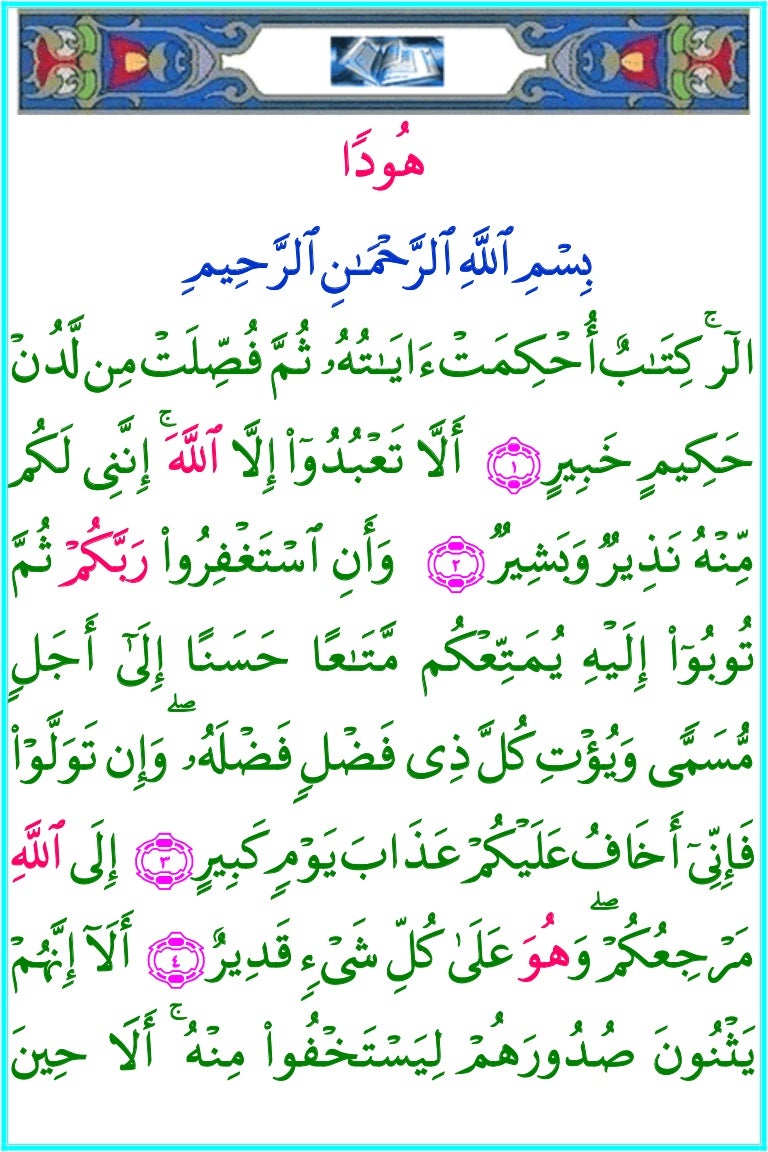 هُودًا
بِسْمِ ٱللَّهِ ٱلرَّحْمَـٰنِ ٱلرَّحِيمِ
الٓر ۚ كِتَـٰبٌ أُحْكِمَتْ ءَايَـٰتُهُۥ ثُمَّ فُصِّلَتْ مِن لَّدُنْ
حَكِيمٍ خَبِيرٍ ١ أَلَّا تَعْبُدُوٓا۟ إِلَّا ٱللَّهَ ۚ إِنَّنِى لَكُم
مِّنْهُ نَذِيرٌ وَبَشِيرٌ ٢ وَأَنِ ٱسْتَغْفِرُوا۟ رَبَّكُمْ ثُمَّ
تُوبُوٓا۟ إِلَيْهِ يُمَتِّعْكُم مَّتَـٰعًا حَسَنًا إِلَىٰٓ أَجَلٍ
مُّسَمًّى وَيُؤْتِ كُلَّ ذِى فَضْلٍ فَضْلَهُۥ ۖ وَإِن تَوَلَّوْا۟
فَإِنِّىٓ أَخَافُ عَلَيْكُمْ عَذَابَ يَوْمٍ كَبِيرٍ ٣ إِلَى ٱللَّهِ
مَرْجِعُكُمْ ۖ وَهُوَ عَلَىٰ كُلِّ شَىْءٍ قَدِيرٌ ٤ أَلَآ إِنَّهُمْ
يَثْنُونَ صُدُورَهُمْ لِيَسْتَخْفُوا۟ مِنْهُ ۚ أَلَا حِينَ